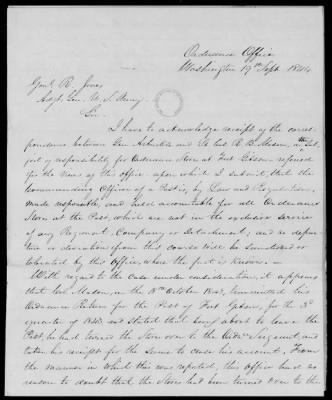 Ordnance Office
Washington 19th Sept. 1844
Genl. R. Jones
Adjt. Gen. U. S. Army.
Sir,
I have to acknowledge receipt of the corres-
pondence between Gen. Arbuckle and Lt. Col. R. B. Mason, on the sub-
ject of responsibility for Ordnance Stores at Fort Gibson referred
for the views of this office upon which I submit, that the
Commanding Officer of a Post is, by Law and Regulation,
made responsible, and held accountable for all Ordnance
Stores at the Post, which are not in the exclusive service
of any Regiment, Company or Detachment; and no depar-
ture or deviation from this course will be sanctioned or
tolerated by this Office, where the fact is known. –
With regard to the case under consideration, it appears
that Col. Mason, on the 18th October 1843, transmitted his
Ordnance Return for the Post of Fort Gibson, for the 3d
quarter of 1843 and stated that being about to leave the
Post, he had turned the Stores over to the Ord. Sergeant, and
taken his receipt for the same to close his account. From
the manner in which this was reported, this Office had no
reason to doubt that the Stores had been turned over to the